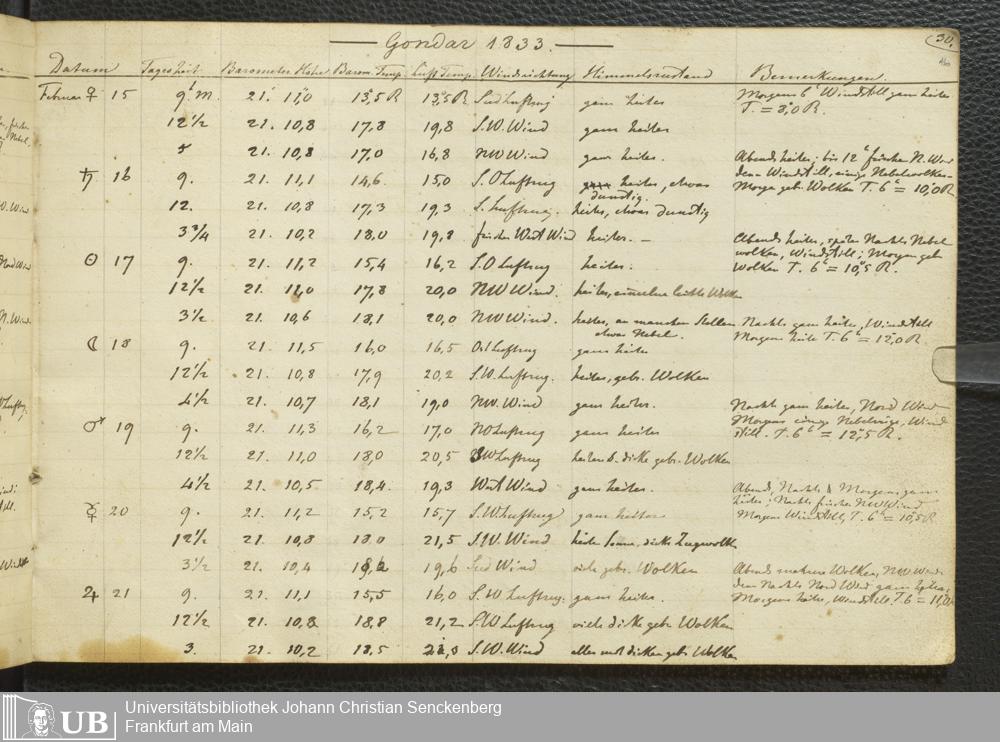 Gondar 1833.
30.
Datum Tageszeit. Barometer Höhe Barom. Temp. Luft Temp. Windrichtung Himmelszustand Bemerkungen.
Februar ♀ 15 9h M. 21. 11,0 13,5 R 13,5 R Süd Luftzug ganz heiter Morgens 6h Windstill ganz heiter
T. = 8,0 R.
12 1/2 21. 10,8 17,8 19,8 S.W. Wind ganz heiter
5 21. 10,8 17,0 16,8 NW Wind ganz heiter. Abends heiter; bis 12h frischer N. Wind
♄ 16 9. 21. 11,1 14,6 15,0 S.O Luftzug heiter, etwas dann Windstill, einige Nebelwolken
dunstig. Morgen geb. Wolken T. 6h = 10,0 R
12. 21. 10,8 17,3 19,3 S. Luftzug. heiter, etwas dunstig
3 3/4 21. 10,2 18,0 19,8 frischer West Wind heiter. — Abends heiter, später Nachts Nebel
☉ 17 9. 21. 11,2 15,4 16,2 S.O Luftzug heiter. wolken, Windstill; Morgen geb.
Wolken T. 6h = 10,5 R.
12 1/2 21. 11,0 17,8 20,0 NW Wind. heiter, einzelne leichte Wolken
3 1/2 21. 10,6 18,1 20,0 NW Wind. heiter, an manchen Stellen Nachts ganz heiter, Windstill
etwas Nebel. Morgens heiter T. 6h = 12,0 R
☾ 18 9. 21. 11,5 16,0 16,5 Ost Luftzug ganz heiter
12 1/2 21. 10,8 17,9 20,2 S.W. Luftzug. heiter, gebr. Wolken
4 1/2 21. 10,7 18,1 19,0 NW. Wind ganz heiter. Nacht ganz heiter, Nord Wind
♂ 19 9. 21. 11,3 16,2 17,0 NO Luftzug ganz heiter Morgens einige Nebelzüge, Wind
still. T. 6h = 12,5 R.
12 1/2 21. 11,0 18,0 20,5 SW Luftzug heiter dicke gebr. Wolken
4 1/2 21. 10,5 18,4. 19,3 West Wind ganz heiter. Abends, Nachts & Morgens ganz
☿ 20 9. 21. 11,2 15,2 15,7 S.W. Luftzug ganz heiter heiter; Nachts frischer NW Wind
Morgens Windstill, T. 6h = 10,5 R
12 1/2 21. 10,8 18,0 21,5 S.W. Wind dicke Zugwolken
3 1/2 21. 10,4 19,6 Süd Wind viele gebr. Wolken Abends mehrere Wolken, NW Wind.
♃ 21 9. 21. 11,1 15,5 16,0 S.W Luftzug. ganz heiter. dann Nachts Nord Wind ganz heiter,
Morgens heiter, Windstill. T. 6 = 11,0
12 1/2 21. 10,8 18,8 21,2 S.W Luftzug viele dicke gebr. Wolken
3. 21. 10,2 18,5 S.W. Wind alles mit dicken gebr. Wolken
Universitätsbibliothek Johann Christian Senckenberg
UB Frankfurt am Main